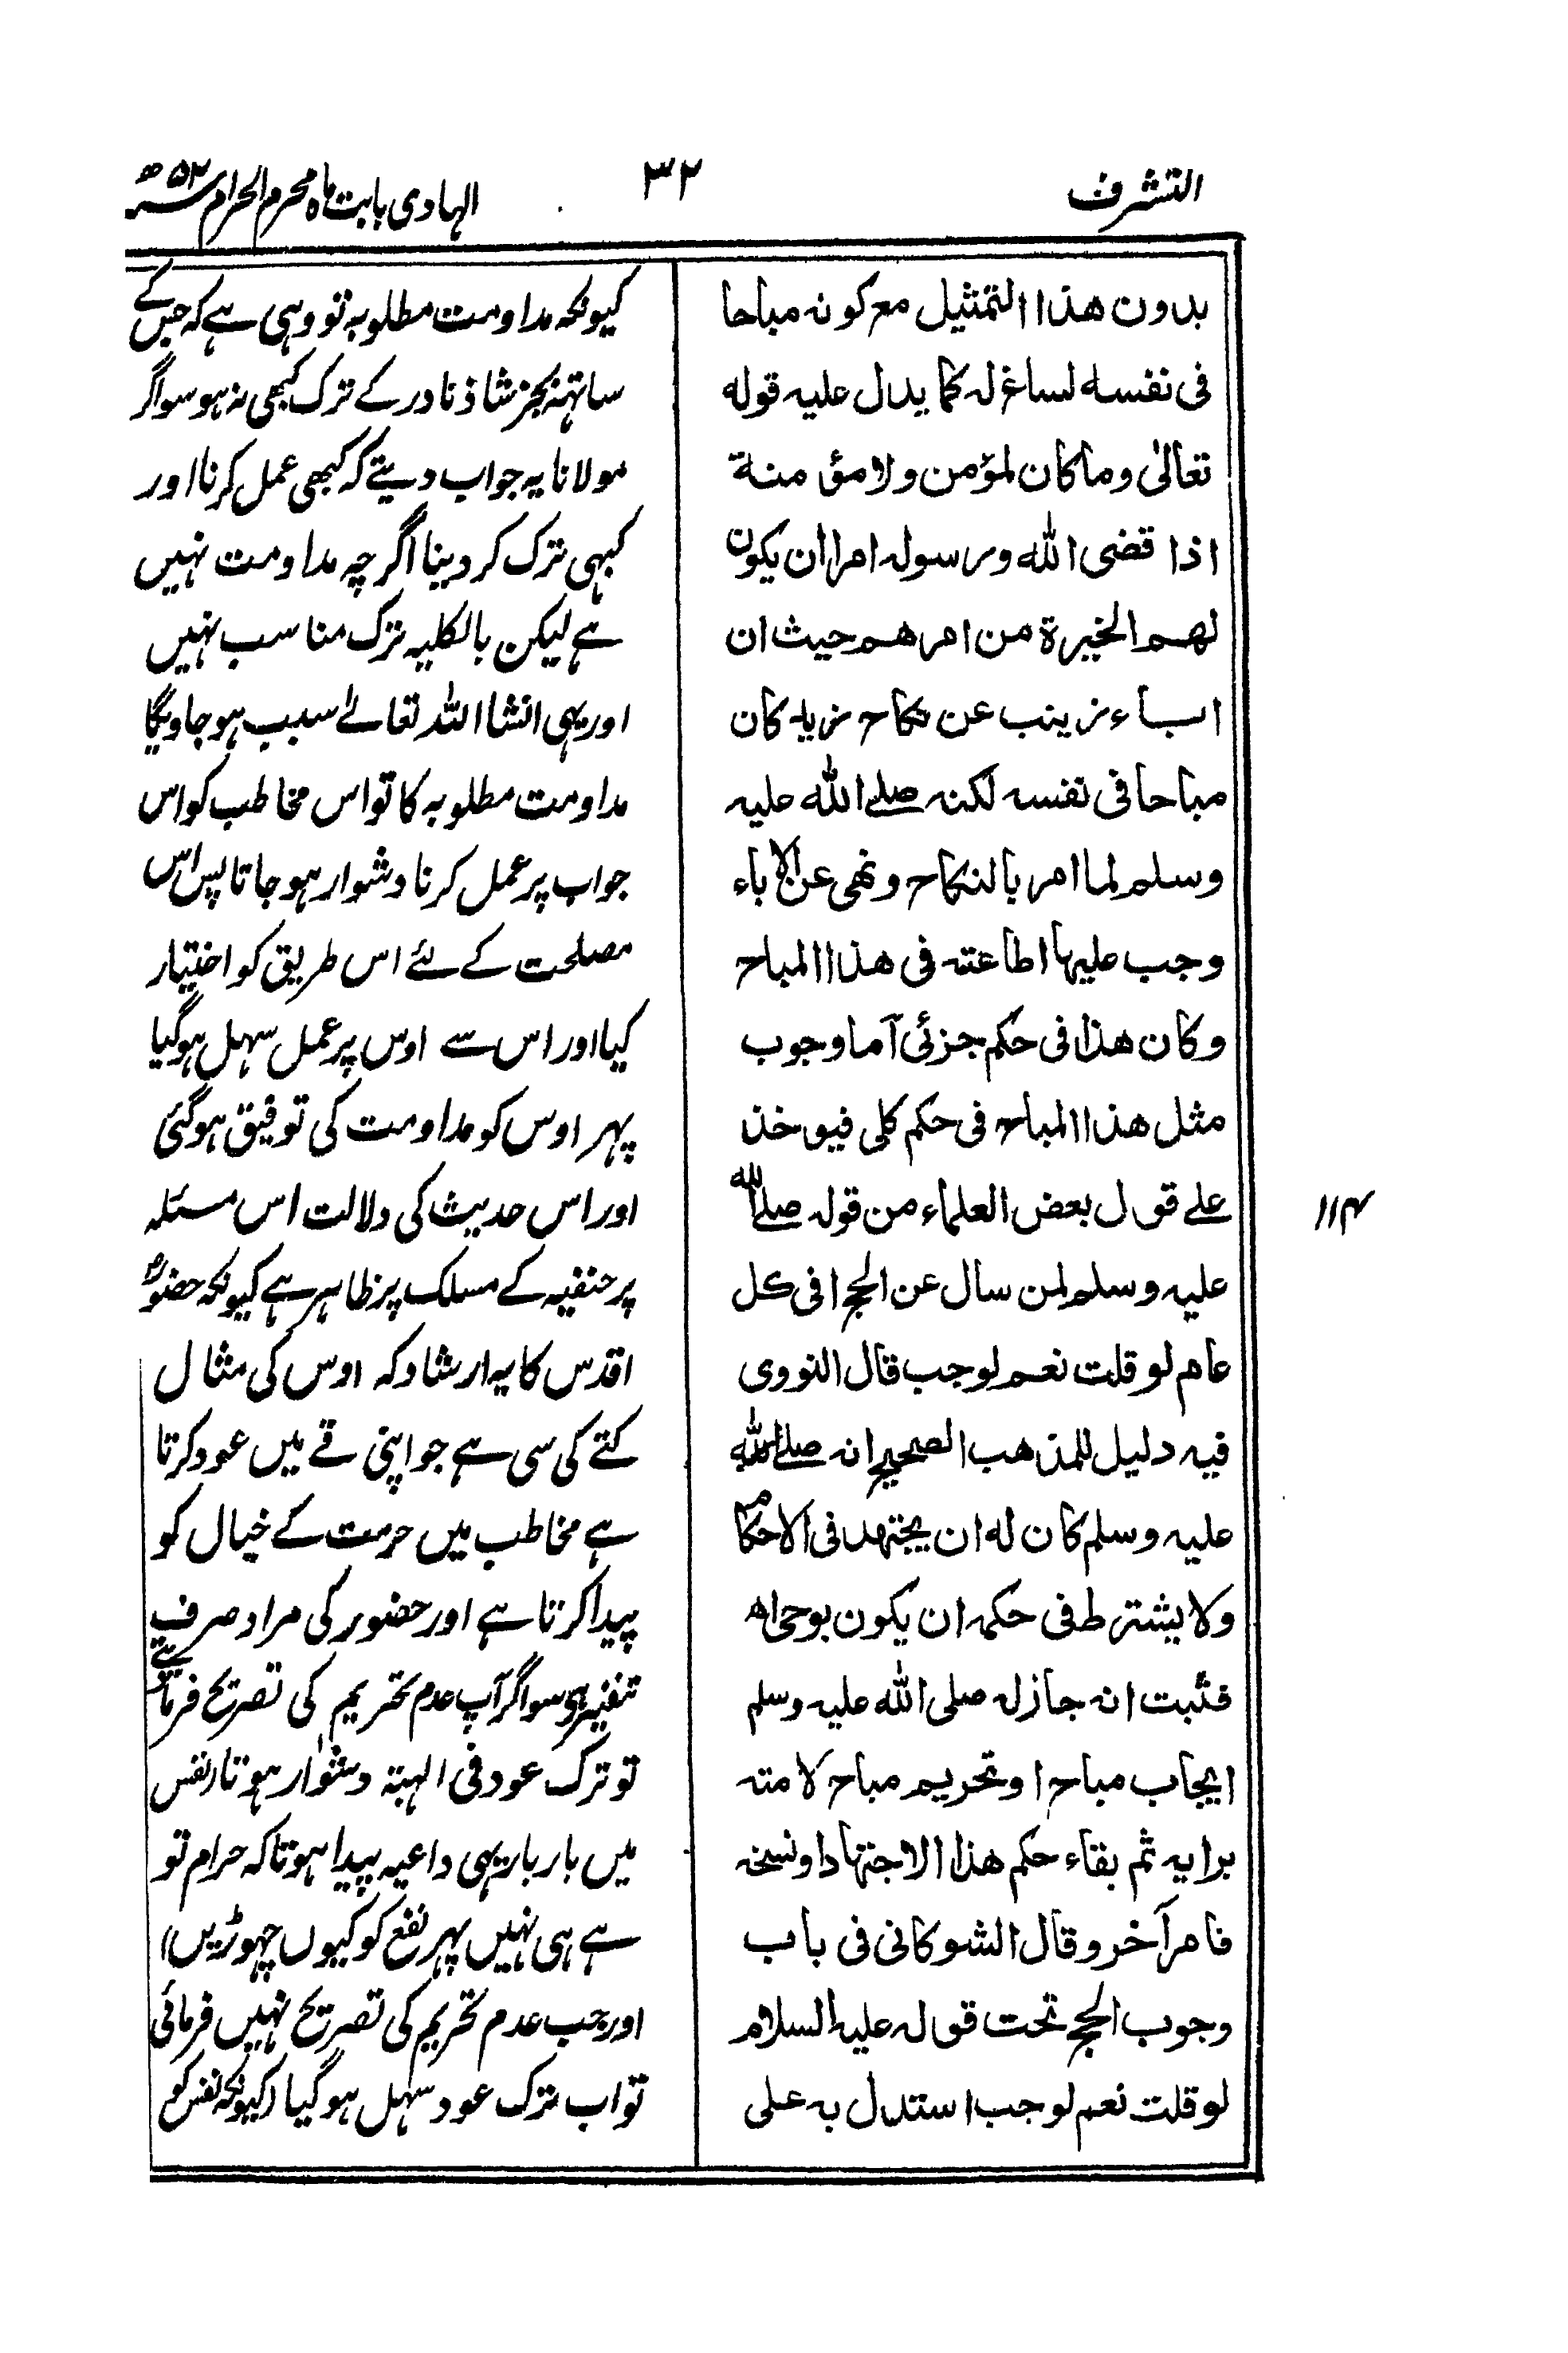 التشرف
۳۲
الہادی بابت ماہ محرم الحرام سنہ ۵۲ھ
بدون هذا التمثیل مع کونه مباحا
فی نفسه لساغ له کما یدل علیه قوله
تعالیٰ وما کان لمؤمن ولا مؤمنة
اذا قضی الله ورسوله امرا ان یکون
لهم الخیرة من امرهم حیث ان
اباء زینب عن نکاح زید کان
مباحا فی نفسه لکنه صلے الله علیه
وسلم لما امر بالنکاح ونهی عن الاباء
وجب علیها اطاعته فی هذا المباح
وکان هذا فی حکم جزئی آما وجوب
مثل هذا المباح فی حکم کلی فیوخذ
علے قول بعض العلماء من قوله صلے الله
علیه وسلم لمن سأل عن الحج افی کل
عام لو قلت نعم لوجب قال النووی
فیه دلیل للمذهب الصحیح انه صلے الله
علیه وسلم کان له ان یجتهد فی الاحکام
ولا یشترط فی حکمه ان یکون بوحی اھ
فثبت انه جاز له صلی الله علیه وسلم
ایجاب مباح او تحریم مباح لامته
برایه ثم بقاء حکم هذا الاجتهاد او نسخه
فامر آخر وقال الشوکانی فی باب
وجوب الحج تحت قوله علیه السلام
لو قلت نعم لوجب استدل به علی
۱۱۴
کیونکہ مداومت مطلوبہ تو وہی ہے کہ جس کے
ساتہہ بجز شاذ نادر کے ترک کبھی نہ ہو سو اگر
مولانا یہ جواب دیتے کہ کبھی عمل کرنا اور
کبہی ترک کر دینا اگرچہ مداومت نہیں
ہے لیکن بالکلیہ ترک مناسب نہیں
اور یہی انشا اللہ تعالےٰ سبب ہو جاویگا
مداومت مطلوبہ کا تو اس مخاطب کو اس
جواب پر عمل کرنا دشوار ہو جاتا پس اس
مصلحت کے لئے اس طریق کو اختیار
کیا اور اس سے اوس پر عمل سہل ہو گیا
پہر اوس کو مداومت کی توفیق ہو گئی
اور اس حدیث کی دلالت اس مسئلہ
پر حنفیہ کے مسلک پر ظاہر ہے کیونکہ حضور
اقدس کا یہ ارشاد کہ اوس کی مثال
کتے کی سی ہے جو اپنی قے میں عود کرتا
ہے مخاطب میں حرمت کے خیال کو
پیدا کرتا ہے اور حضور کی مراد صرف
تنفیر ہے سو اگر آپ عدم تحریم کی تصریح فرماتے
تو ترک عود فی الہبتہ دشوار ہوتا (نفس
میں بار بار یہی داعیہ پیدا ہوتا کہ حرام تو
ہے ہی نہیں پہر نفع کو کیوں چہوڑیں)
اور جب عدم تحریم کی تصریح نہیں فرمائی
تو اب ترک عود سہل ہو گیا (کیونکہ نفس کو